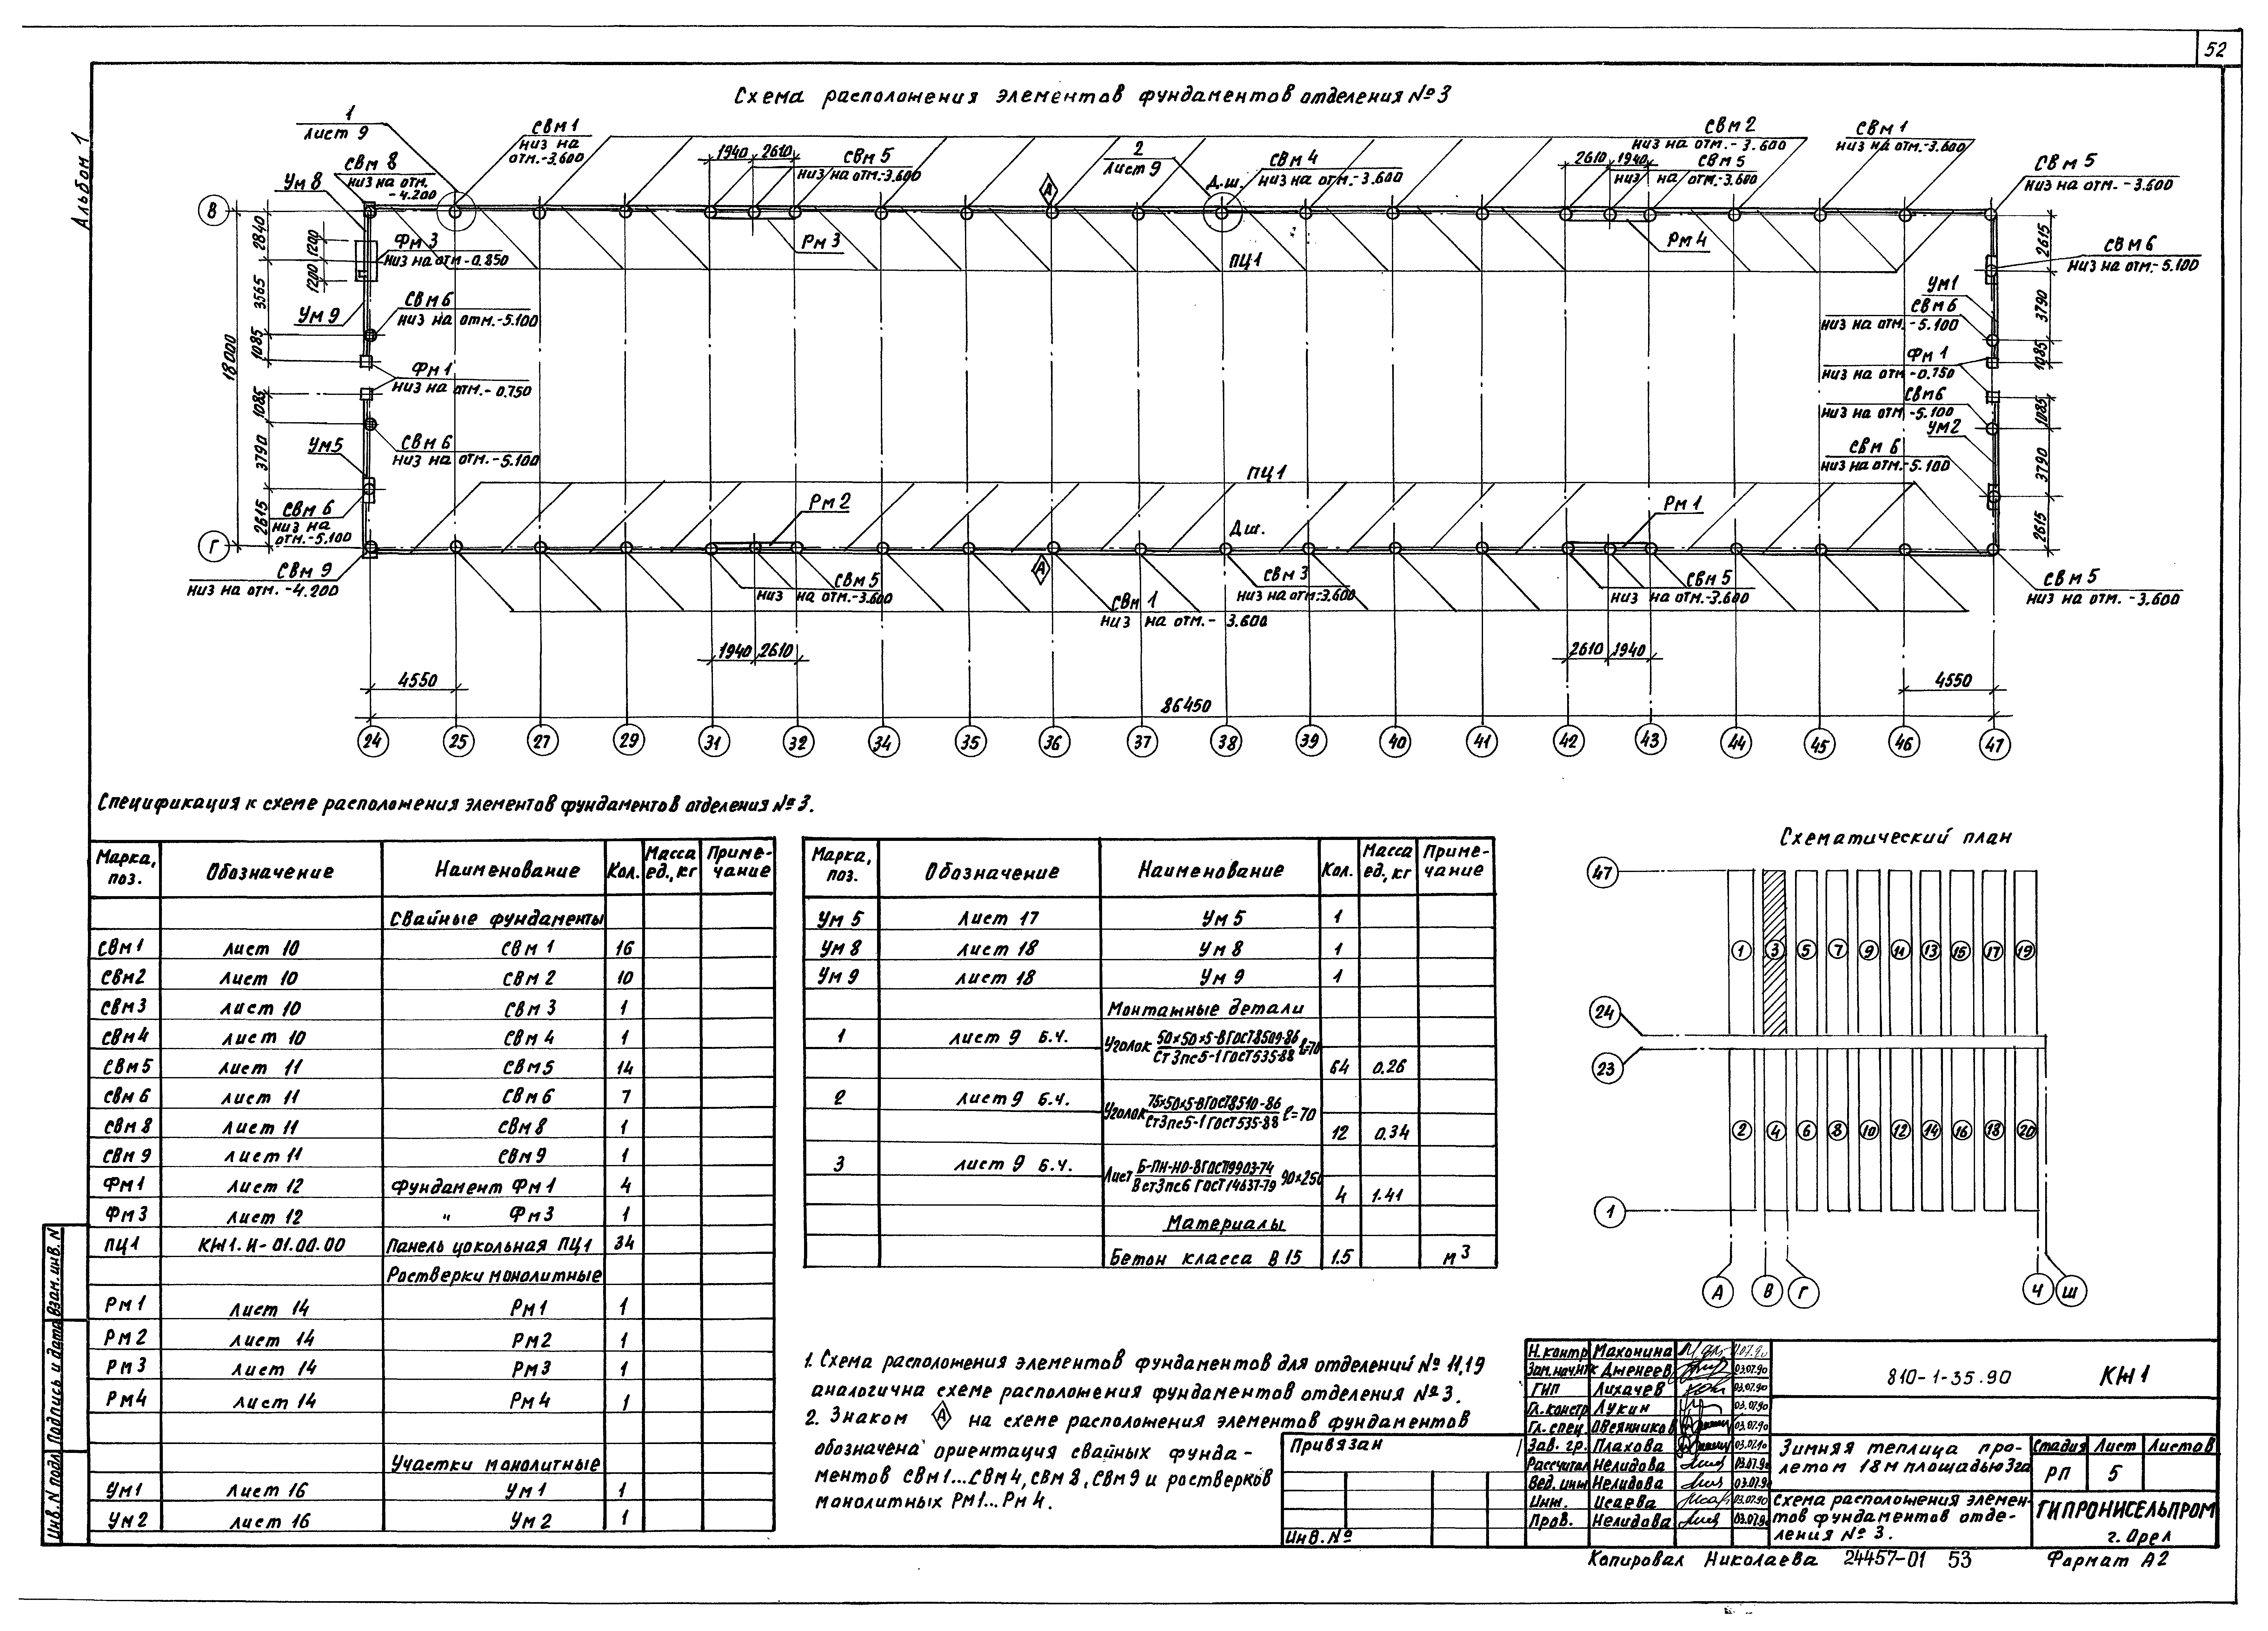 52
Альбом 1
Схема расположения элементов фундаментов отделения №3
1
Лист 9
Свм 1
низ на
отм.-3.600
Свм 8
низ на отм.
-4.200
Ум 8
1940 2610
Свм 5
низ на отм.-3.600
2
Лист 9
Д.ш.
Свм 4
низ на отм.-3.600
Свм 2
низ на отм.-3.600
2610 1940
Свм 5
низ на отм.-3.600
Свм 1
низ на отм.-3.600
Свм 5
низ на отм.-3.600
В
А
2840
1200
1200
Фм 3
низ на отм-0.850
Рм 3
ПЦ1
Рм 4
2615
Свм 6
низ на отм.-5.100
3565
Ум 9
Свм 6
низ на отм.-5.100
Ум1
Свм 6
низ на отм.-5.100
3790
18000
1085
Фм 1
низ на отм.-0.750
Фм 1
низ на отм-0.750
1085
1085
Свм 6
низ на отм.-5.100
Свм6
низ на отм-5.100
1085
3790
Ум5
Ум2
Свм 6
низ на отм.-5.100
3790
2615
Свм 6
низ на
отм.-5.100
ПЦ1
Рм 2
Д.ш.
Рм 1
2615
Г
Свм 9
низ на отм.-4.200
Свм 5
низ на отм.-3.600
А
Свм 1
низ на отм.-3.600
Свм 3
низ на отм.-3.600
Свм 5
низ на отм.-3.600
Свм 5
низ на отм.-3.600
1940 2610
2610 1940
4550
4550
86450
24 25 27 29 31 32 34 35 36 37 38 39 40 41 42 43 44 45 46 47
Спецификация к схеме расположения элементов фундаментов отделения №3.
Марка, поз. Обозначение Наименование Кол. Масса ед., кг Приме-чание
Свайные фундаменты
Свм1 Лист 10 Свм 1 16
Свм2 Лист 10 Свм 2 10
Свм3 Лист 10 Свм 3 1
Свм4 Лист 10 Свм 4 1
Свм5 Лист 11 Свм5 14
Свм 6 Лист 11 Свм 6 7
Свм 8 Лист 11 Свм 8 1
Свм 9 Лист 11 Свм 9 1
Фм1 Лист 12 Фундамент Фм 1 4
Фм3 Лист 12 " Фм3 1
ПЦ1 КЖ1.И-01.00.00 Панель цокольная ПЦ1 34
Ростверки монолитные
Рм1 Лист 14 Рм1 1
Рм2 Лист 14 Рм2 1
Рм3 Лист 14 Рм3 1
Рм4 Лист 14 Рм4 1
Участки монолитные
Ум1 Лист 16 Ум 1 1
Ум2 Лист 16 Ум 2 1
Марка, поз. Обозначение Наименование Кол. Масса ед., кг Приме-чание
Ум 5 Лист 17 Ум 5 1
Ум 8 Лист 18 Ум 8 1
Ум 9 Лист 18 Ум 9 1
Монтажные детали
1 Лист 9 Б.ч. Уголок 50×50×5-В ГОСТ8509-86
Ст3пс5-1 ГОСТ535-88 ℓ=70
64 0.26
2 Лист 9 Б.ч. Уголок 75×50×5-В ГОСТ8510-86
Ст3пс5-1 ГОСТ535-88 ℓ=70
12 0.34
3 Лист 9 Б.ч. Лист Б-ПН-НО-8 ГОСТ19903-74
Вст3пс6 ГОСТ14637-79 90×250
4 1.41
Материалы
Бетон класса В15 1.5 м3
1. Схема расположения элементов фундаментов для отделений № 11,19
аналогична схеме расположения фундаментов отделения №3.
2. Знаком А на схеме расположения элементов фундаментов
обозначена ориентация свайных фунда-
ментов Свм1...Свм4, Свм 8, Свм9 и ростверков
монолитных Рм1...Рм 4.
Схематический план
47
1 3 5 7 9 11 13 15 17 19
24
23
2 4 6 8 10 12 14 16 18 20
1
А В Г Ч Ш
Привязан
Инв.№
Н.контр Махонина
Зам.нач. Дменеев 03.07.90
ГИП Лихачев 03.07.90
Гл.констр Лукин 03.07.90
Гл.спец. Овсянников 03.07.90
Зав. гр. Плахова 03.07.90
Рассчитал Нелидова 03.07.90
Вед. инж Нелидова 03.07.90
Инж. Исаева 03.07.90
Пров. Нелидова 03.07.90
810-1-35.90 КЖ1
Зимняя теплица про-
летом 18м площадью 3га
Стадия Лист Листов
РП 5
Схема расположения элемен-
тов фундаментов отде-
ления №3.
ГИПРОНИСЕЛЬПРОМ
г. Орел
Инв.N подл. Подпись и дата Взам.инв.N
Копировал Николаева 24457-01 53 Формат А2